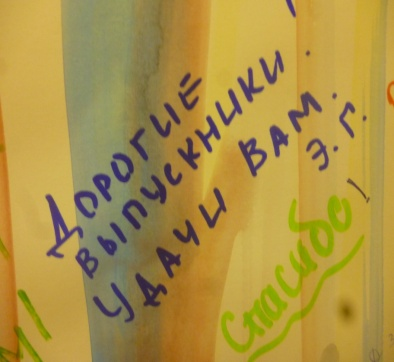 ДОРОГИЕ
ВЫПУСКНИКИ.
УДАЧИ ВАМ.
Э.Г.
Спасибо!